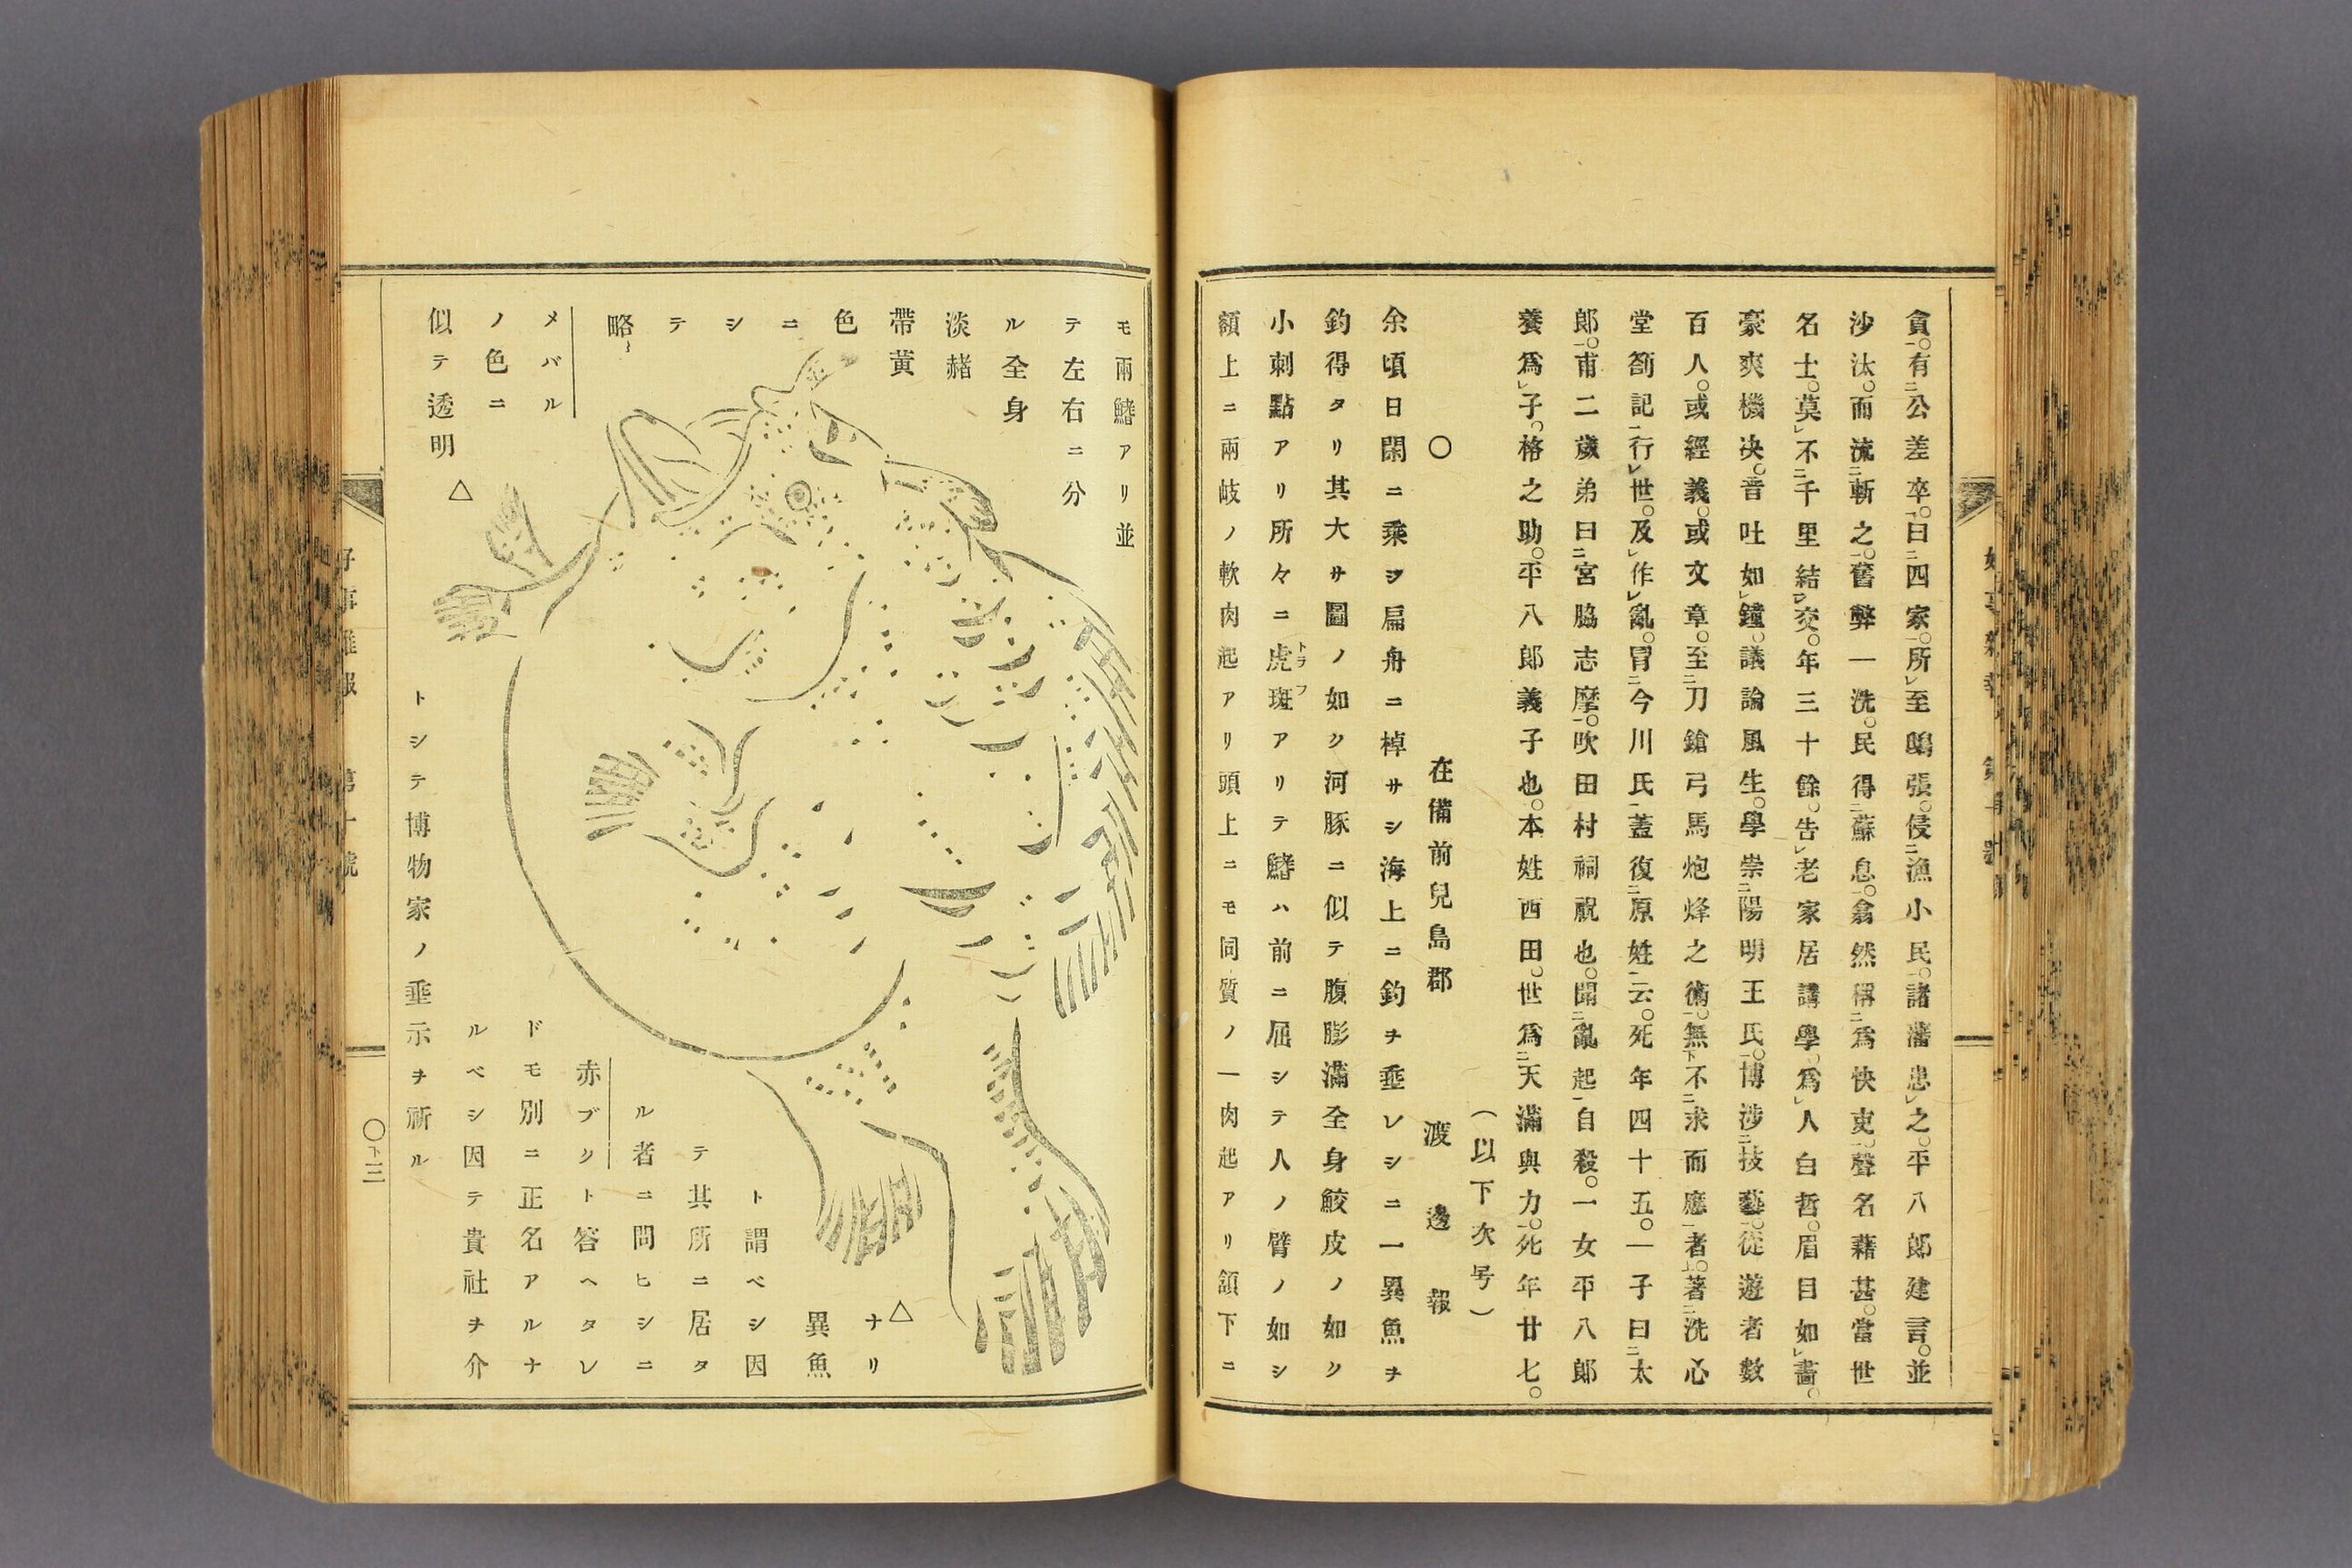 貪㆒。有㆓公差卒㆒。曰㆓四家㆒。所㆑至鴟張。侵㆓漁小民㆒。諸藩患㆑之。平八郎建言。並
沙汰。而流㆓斬之㆒。舊弊一洗。民得㆓蘇息㆒。翕然稱㆓爲快吏㆒。聲名藉甚。當世
名士。莫㆑不㆓千里結㆒㆑交。年三十餘。告㆑老家居講學。爲㆑人白哲。眉目如㆑畵。
豪爽機决。音吐如㆑鐘。議論風生。學崇㆓陽明王氏㆒。博涉㆓技藝㆒。從遊者數
百人。或經義。或文章。至㆓刀鎗弓馬炮烽之術㆒。無㆘不㆓求而應㆒者㆖。著㆓洗心
堂箚記㆒行㆑世。及㆑作㆑亂。冒㆓今川氏㆒。蓋復㆓原姓㆒云。死年四十五。一子曰㆓太
郎㆒。甫二歲弟曰㆓宮脇志摩㆒。吹田村祠祝也。聞㆓亂起㆒自殺。一女平八郎
養爲㆑子。格之助。平八郎義子也。本姓西田。世爲㆓天滿與力㆒。死年廿七。
（以下次号）
○　在備前兒島郡　渡邊　報
余頃日閑ニ乘シ扁舟ニ棹サシ海上ニ釣チ垂レシニ一異魚チ
釣得タリ其大サ圖ノ如シ河豚ニ似テ腹膨滿全身鮫皮ノ如ク
小刺點アリ所々ニ虎斑アリテ鰭ハ前ニ屈シテ人ノ臂ノ如シ
トラフ
額上ニ兩岐ノ軟肉起アリ頭上ニモ同質ノ一肉起アリ頷下ニ
モ兩鰭アリ並
テ左右ニ分
ル全身
淡赭
帶黄
色
ニ
シ
テ
略
メバル
ノ色ニ
似テ透明
△
△
ナリ
異魚
ト謂ベシ因
テ其所ニ居タ
ル者ニ問ヒシニ
赤ブクト答ヘタレ
ドモ別ニ正名アルナ
ルベシ因テ貴社チ介
トシテ博物家ノ垂示チ祈ル
好事雜報　第十號
○下三